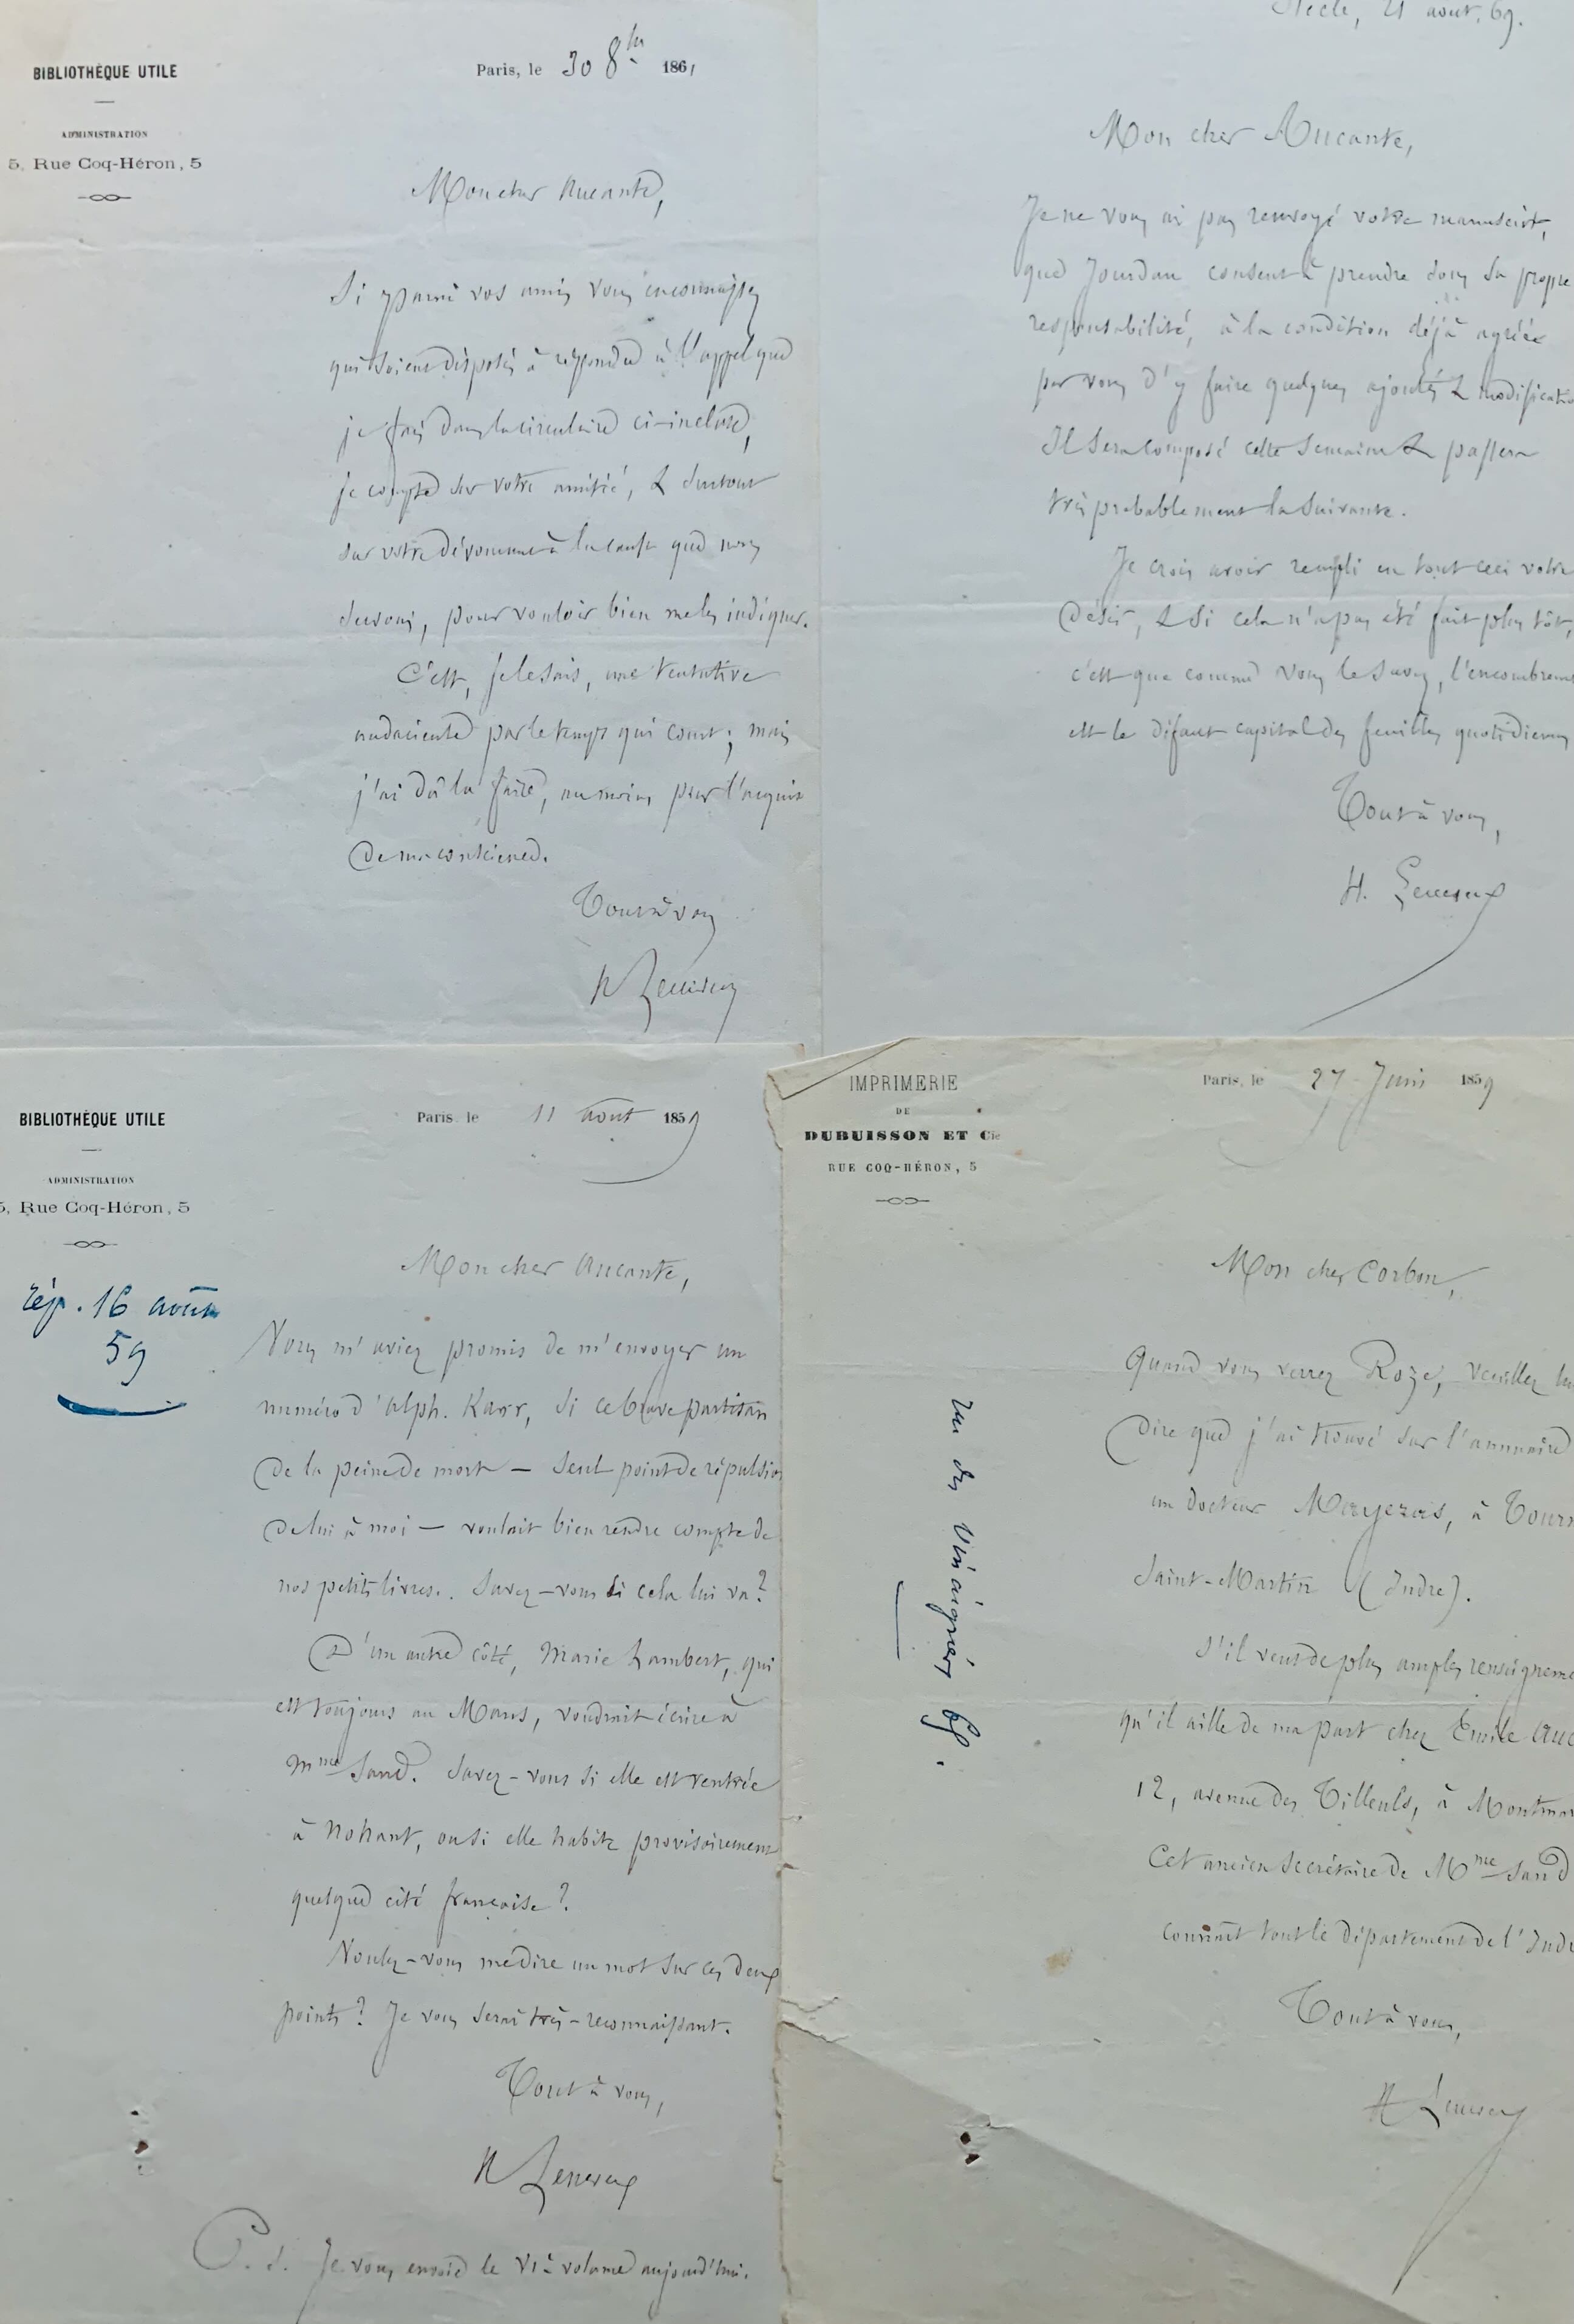 BIBLIOTHÈQUE UTILE
ADMINISTRATION
5, Rue Coq-Héron, 5
Paris, le 30 8bre 1861
Mon cher Aucante,
Si parmi vos amis vous en connaissez
qui soient disposés à répondre à l'appel que
je fais dans la circulaire ci-incluse,
je compte sur votre amitié, & surtout
sur votre dévouement à la cause que nous
servons, pour vouloir bien me les indiquer.
C'est, je le sais, une tentative
audacieuse par le temps qui court ; mais
j'ai dû la faire, au moins pour l'acquit
de ma conscience.
Tout à vous
H Leneveux
Siècle, 21 aout. 69.
Mon cher Aucante,
Je ne vous ai pas renvoyé votre manuscrit,
que Jourdan consent à prendre sous sa propre
responsabilité, à la condition déjà agréée
par vous d'y faire quelques ajoutés & modificatio
Il sera composé cette semaine & passera
très probablement la suivante.
Je crois avoir rempli en tout ceci votre
désir, & si cela n'a pas été fait plus tôt,
c'est que comme vous le savez, l'encombreme
est le défaut capital des feuilles quotidiennes
Tout à vous,
H. Leneveux
BIBLIOTHÈQUE UTILE
ADMINISTRATION
5, Rue Coq-Héron, 5
Paris, le 11 août 1859
rép. 16 août
59
Mon cher Aucante,
Vous m'aviez promis de m'envoyer un
numéro d'alph. Karr, si ce brave partisan
de la peine de mort — seul point de répulsion
de lui à moi — voulait bien rendre compte de
nos petits livres. Savez-vous si cela lui va ?
D'un autre côté, Marie Lambert, qui
est toujours au Mans, voudrait écrire à
Mme Sand. Savez-vous si elle est rentrée
à Nohant, ou si elle habite provisoirement
quelque cité française ?
Voulez-vous me dire un mot sur ces deux
points ? Je vous serai très-reconnaissant.
Tout à vous,
H Leneveux
P. S. Je vous envoie le VIe volume aujourd'hui.
IMPRIMERIE
DE
DUBUISSON ET Cie
RUE COQ-HÉRON, 5
Paris, le 27 Juin 1859
rue des Vinaigriers 69.
Mon cher Corbon,
Quand vous verrez Roze, veuillez lui
dire que j'ai trouvé sur l'annuaire
un docteur Mazeras, à Tourn
Saint-Martin (Indre).
S'il veut de plus amples renseigneme
qu'il aille de ma part chez Émile Auc
12, avenue des Tilleuls, à Montmar
Cet ancien secrétaire de Mme Sand
connait tout le département de l'Indr
Tout à vous,
H Leneveux